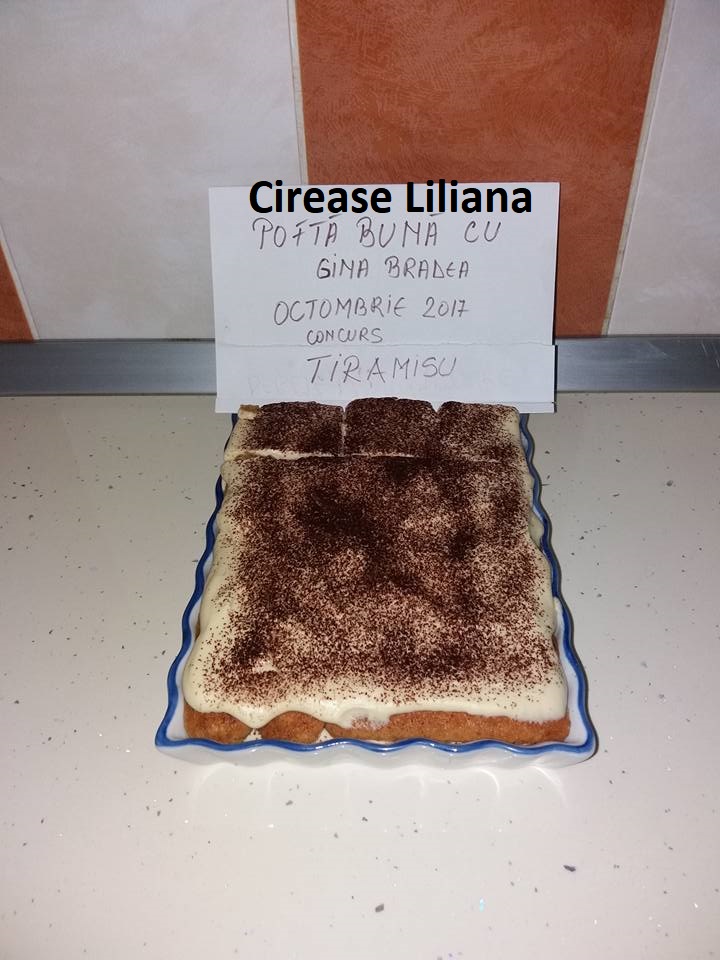 Cirease Liliana
POFTĂ BUNĂ CU
GINA BRADEA
OCTOMBRIE 2017
CONCURS
TIRAMISU